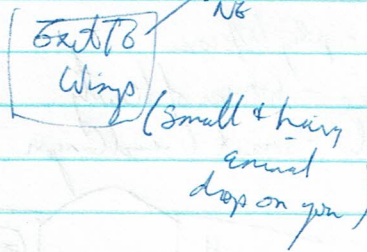 NE
Exit To
Wings
(small & hairy
animal
drop on you)